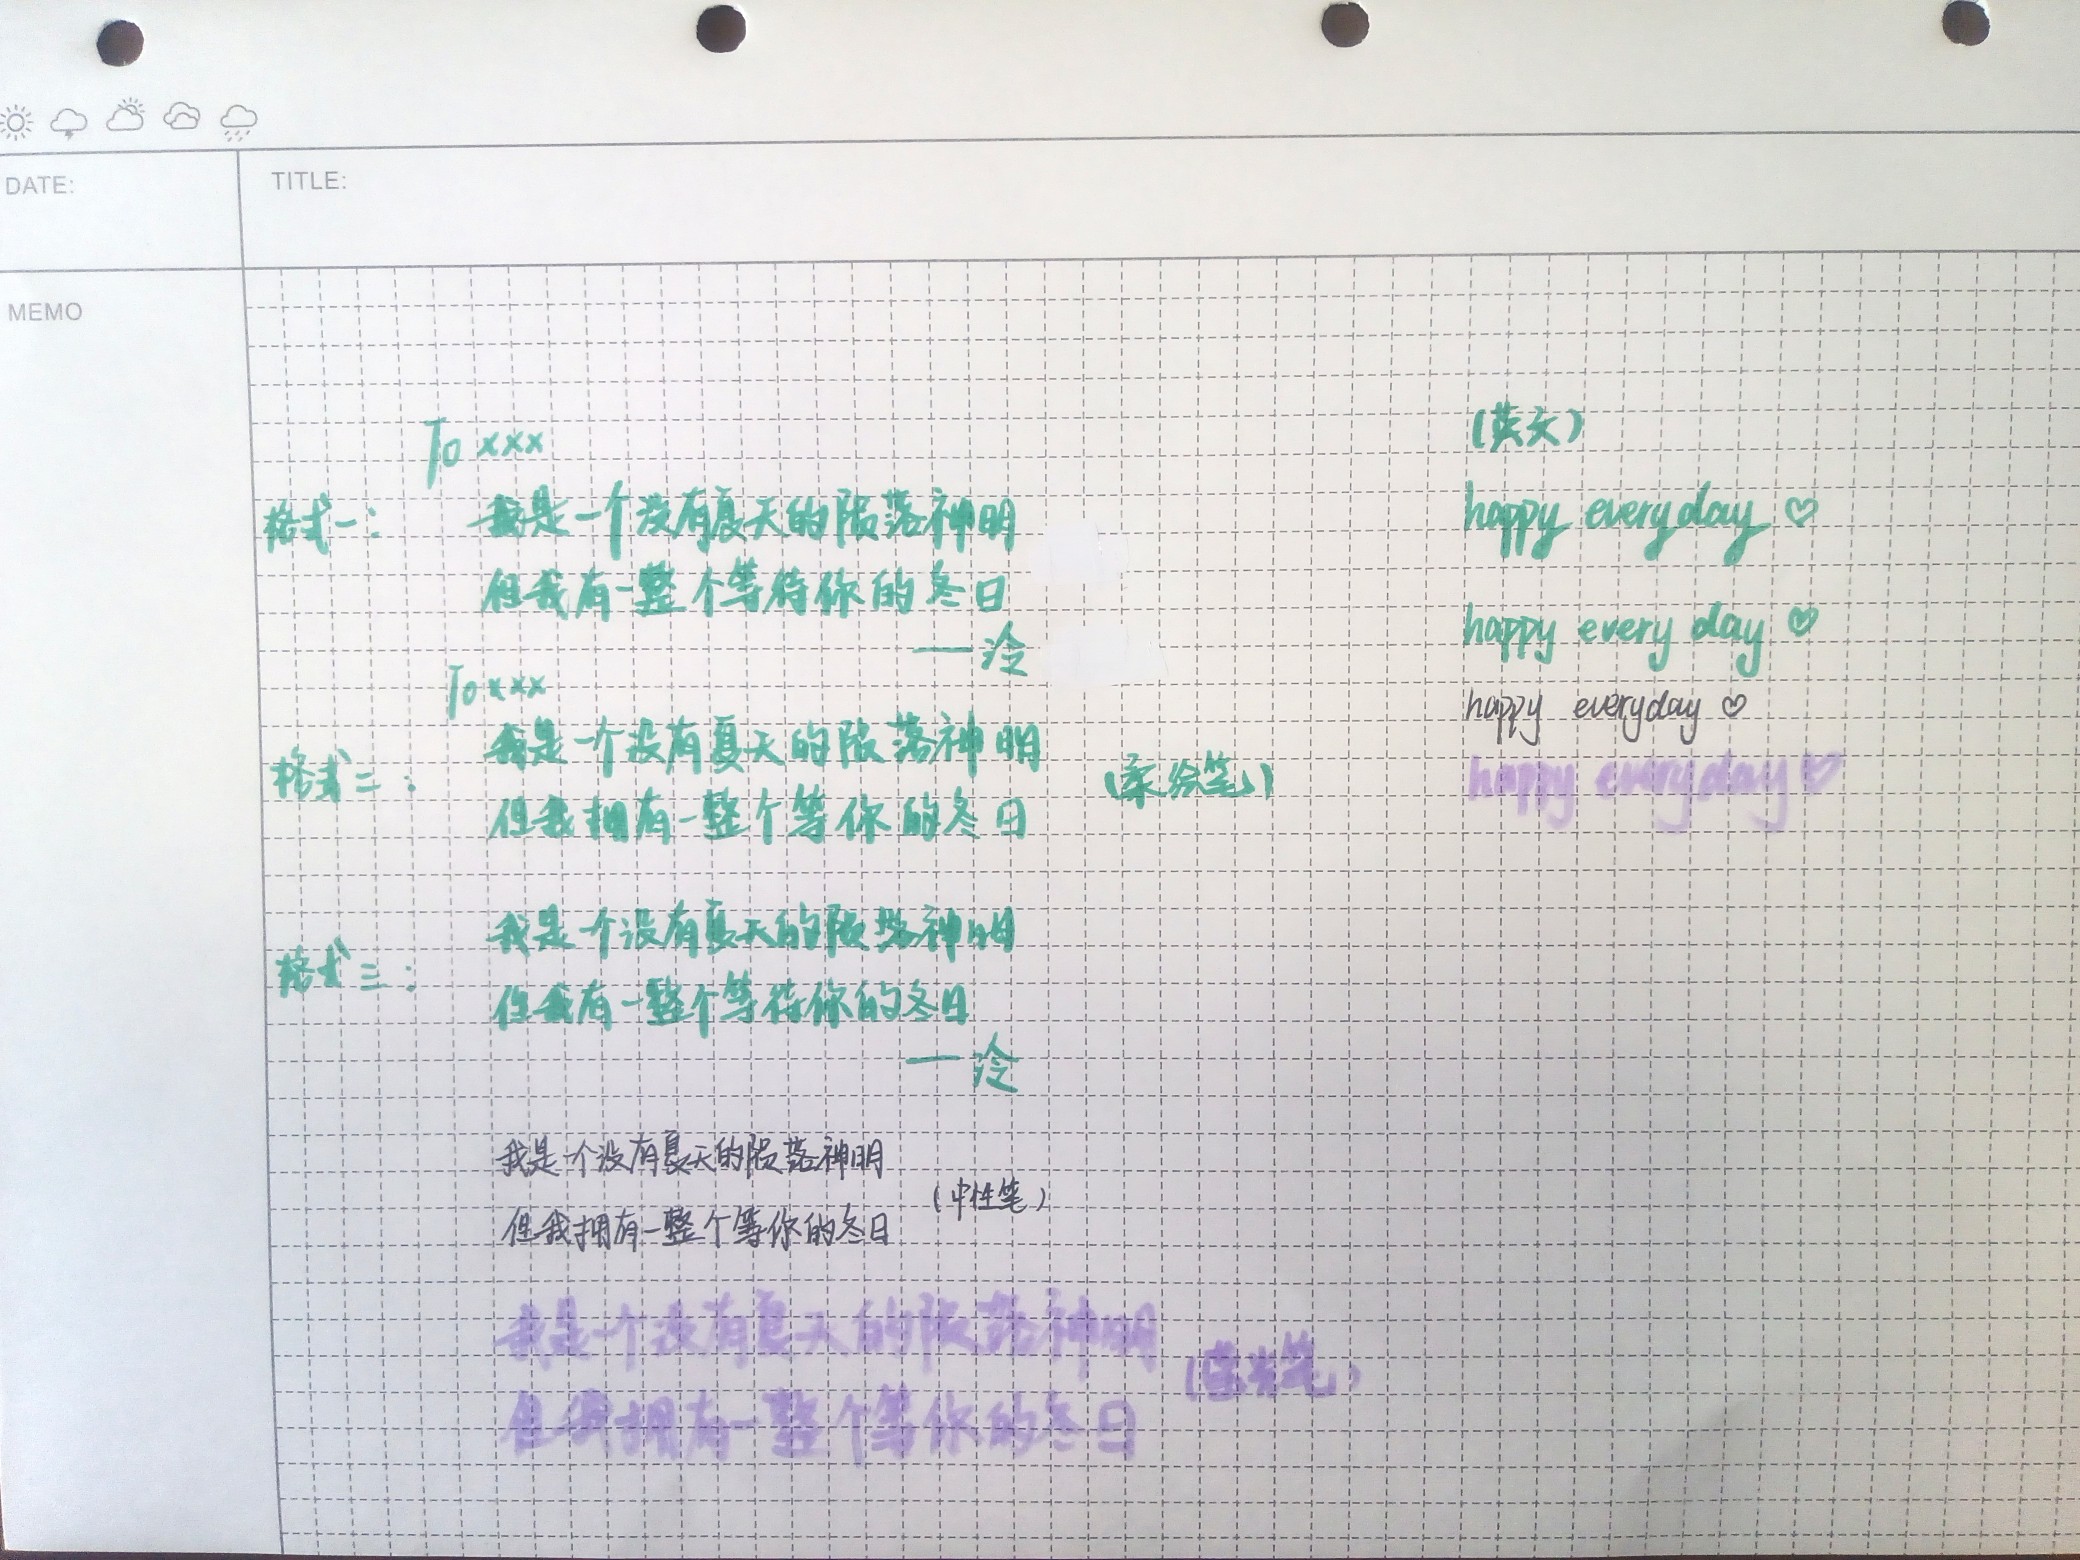 DATE:
TITLE:
MEMO
To xxx
格式一：
我是一个没有夏天的陨落神明
但我有一整个等待你的冬日
——泠
To xxx
格式二：
我是一个没有夏天的陨落神明
但我拥有一整个等你的冬日
(柔绘笔)
格式三：
我是一个没有夏天的陨落神明
但我有一整个等待你的冬日
——泠
我是一个没有夏天的陨落神明
但我拥有一整个等你的冬日
(中性笔)
我是一个没有夏天的陨落神明
但我拥有一整个等你的冬日
(荧光笔)
(英文)
happy everyday ♡
happy every day ♡
happy everyday ♡
happy everyday ♡